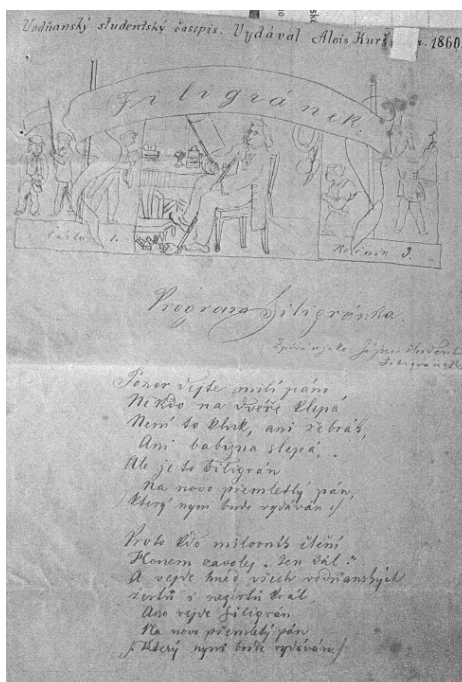 Vodňanský studentský časopis. Vydával Alois 1860.
Filigránek.
Číslo 1.
Ročník 3.
Program Filigránka.
Zpívá se jako: Já jsem študent
Pozor dejte milí páni,
Někdo na dvéře klepá,
Není to kluk, ani žebrák,
Ani babizna slepá,
Ale je to Filigrán
Na novo přemletlý pán,
který nyní bude vydáván :/
Proto kdo milovník čtění
Honem zavolej „ten dál".
A vejde hned všech vodňanských
žertů i nežertů král,
Ano vejde Filigrán
Na novo přemletý pán
/: Který nyní bude vydáván :/